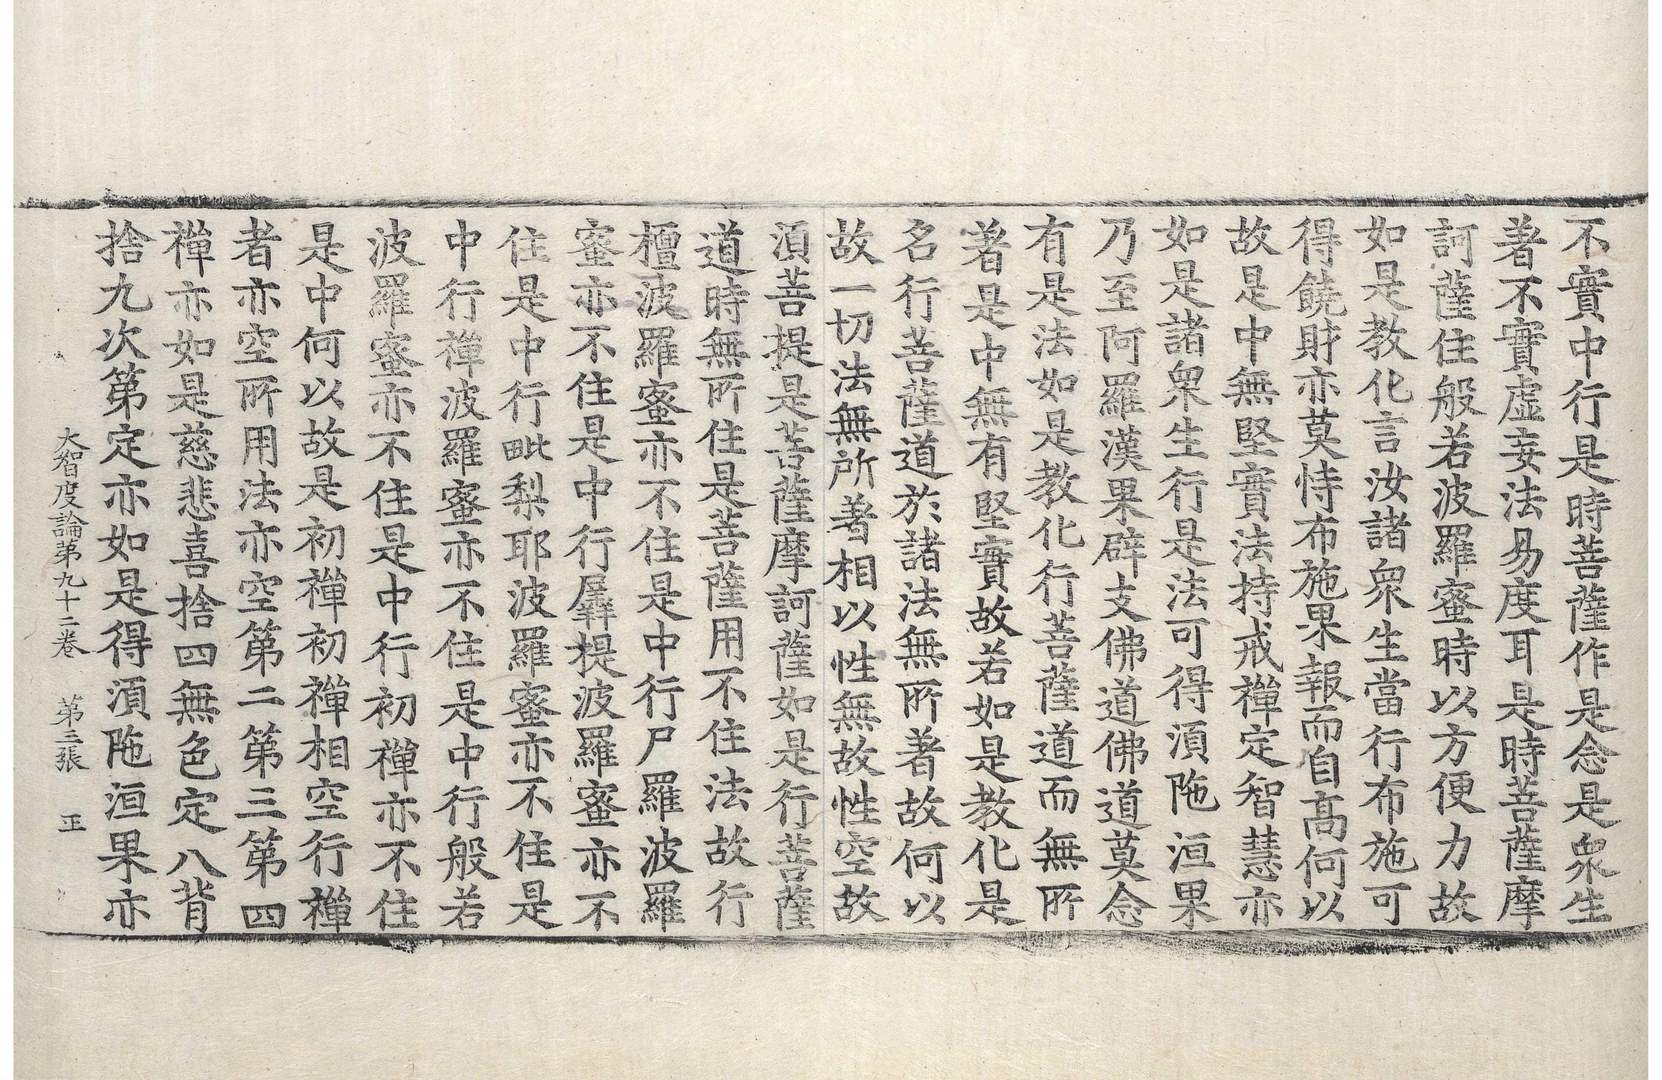 不實中行是時菩薩作是念是衆生
著不實虛妄法易度耳是時菩薩摩
訶薩住般若波羅蜜時以方便力故
如是教化言汝諸衆生當行布施可
得饒財亦莫恃布施果報而自高何以
故是中無堅實法持戒禪定智慧亦
如是諸衆生行是法可得湏陁洹果
乃至阿羅漢果辟支佛道佛道莫念
有是法如是教化行菩薩道而無所
著是中無有堅實故若如是教化是
名行菩薩道於諸法無所著故何以
故一切法無所著相以性無故性空故
湏菩提是菩薩摩訶薩如是行菩薩
道時無所住是菩薩用不住法故行
檀波羅蜜亦不住是中行尸羅波羅
蜜亦不住是中行羼提波羅蜜亦不
住是中行毗梨耶波羅蜜亦不住是
中行禪波羅蜜亦不住是中行般若
波羅蜜亦不住是中行初禪亦不住
是中何以故是初禪初禪相空行禪
者亦空所用法亦空第二第三第四
禪亦如是慈悲喜捨四無色定八背
捨九次第定亦如是得湏陁洹果亦
大智度論第九十二卷 第三張 㱏